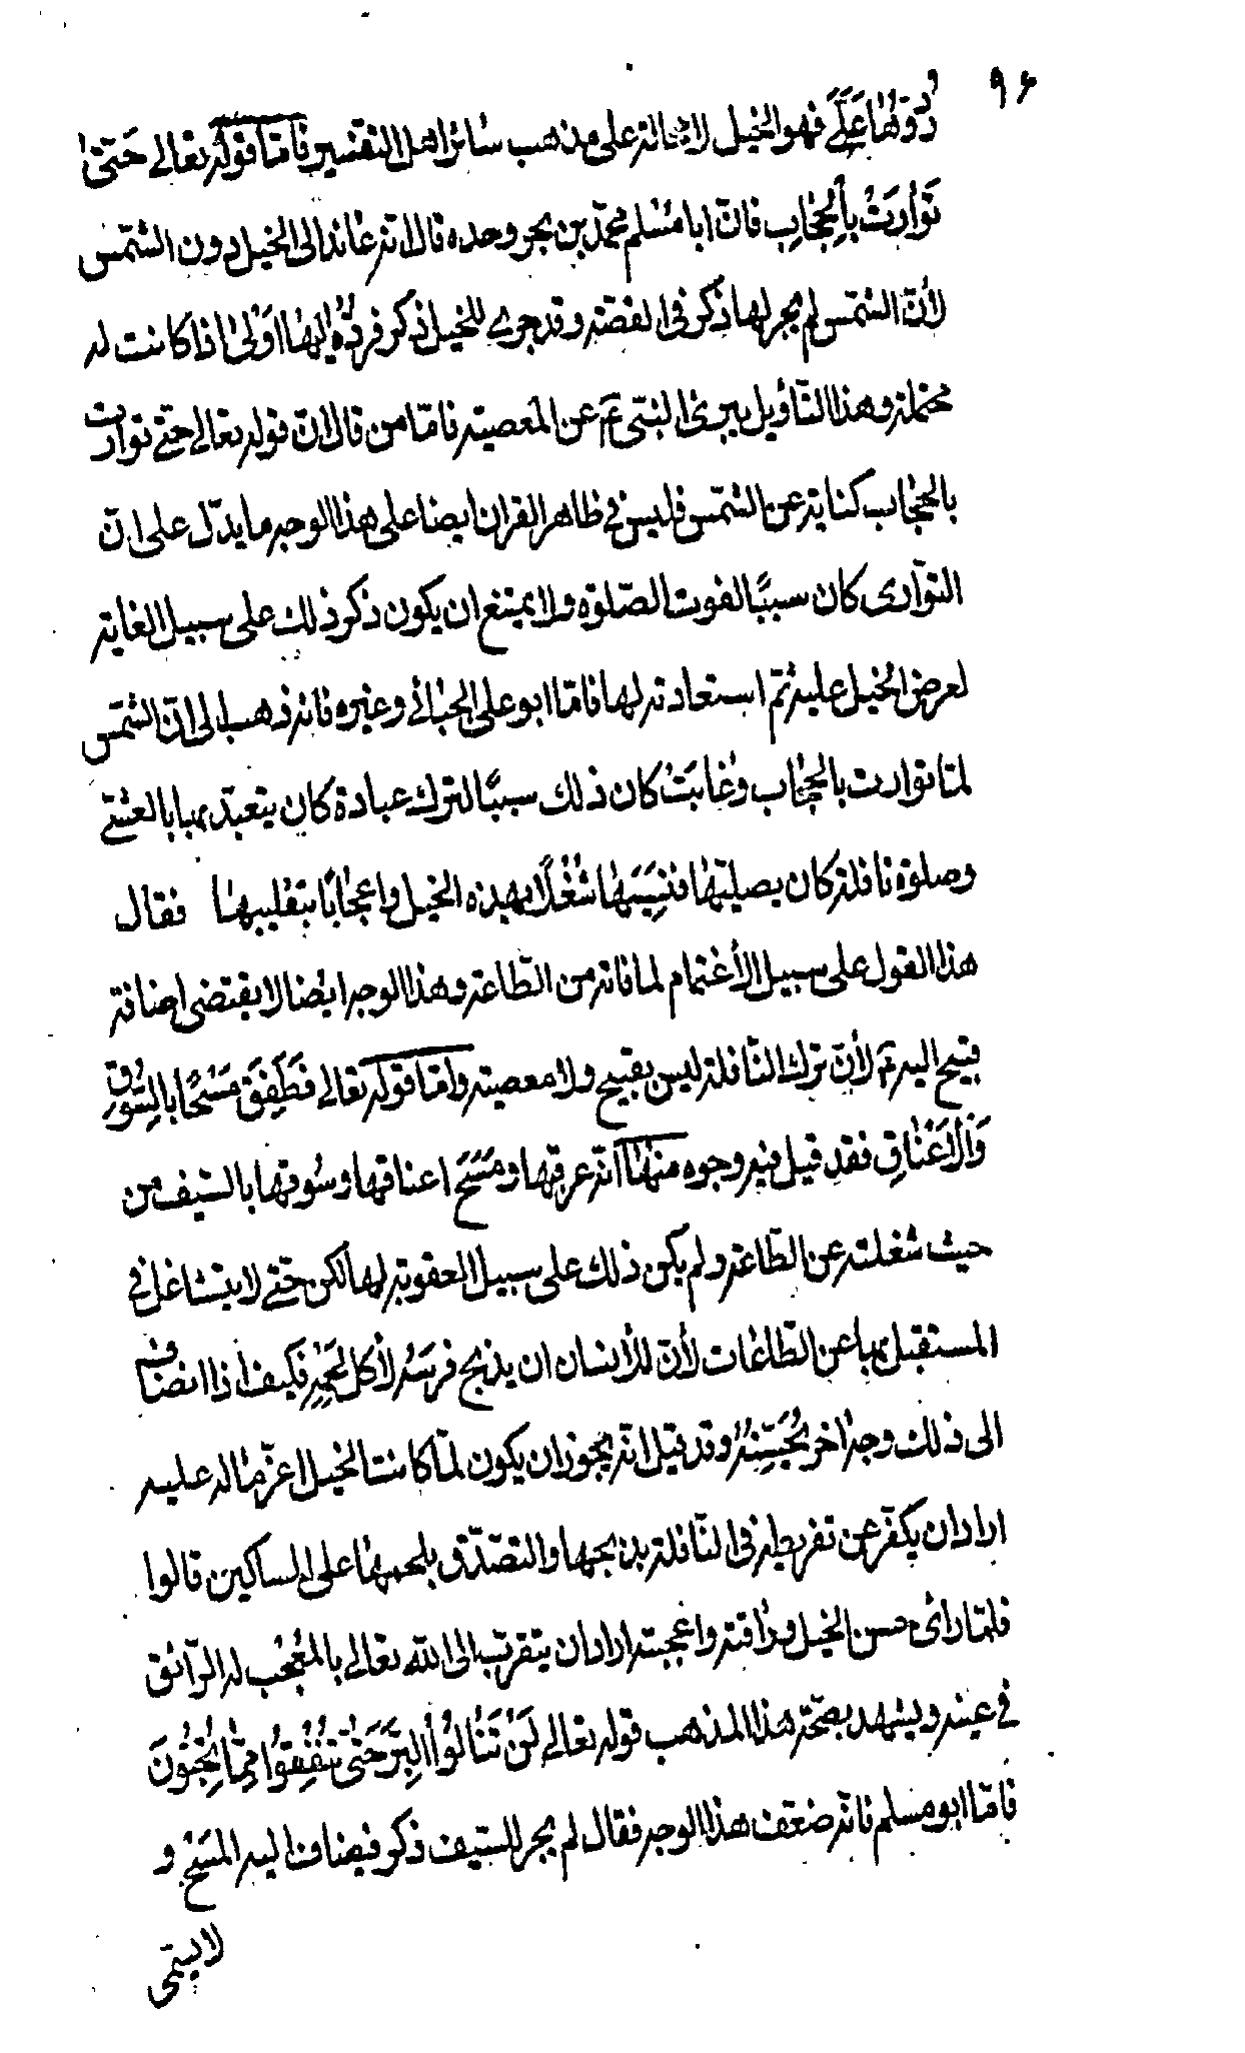 ٩۶
رُدُّوهٰا عَلَىَّ فهو الخيل لا محالة على مذهب سائر اهل التفسير فامّا قوله تعالى حَتّىٰ
تَوٰارَتْ بِالْحِجٰابِ فان ابا مسلم محمّد بن بحر وحده قال انه عائد الى الخيل دون الشّمس
لأنّ الشمس لم يجر لها ذكر فى القصّة وقد جرى للخيل ذكر فردّه اليها اولىٰ اذا كانت له
محتملة وهذا التأويل يبرئ النبىّ عم عن المعصية فامّا من قال انّ قوله تعالى حتى توارت
بالحجاب كناية عن الشّمس فليس فى ظاهر القران ايضا على هذا الوجه ما يدلّ على انّ
التوارى كان سببًا لفوت الصّلوة ولا يمتنع ان يكون ذكر ذلك على سبيل الغاية
لعرض الخيل عليه ثمّ استعادته لها فامّا ابو على الجبائى وغيره فانه ذهب الى انّ الشّمس
لمّا توارت بالحجاب وغابَتْ كان ذلك سببًا لترك عبادة كان يتعبّد بها بالعشىّ
وصلوة نافلة كان يصلّيها فنسيَها شُغْلًا بهذه الخيل واعجٰابًا بتقليبها فقال
هذا القول على سبيل الأغتمام لما فاته من الطّاعة وهذا الوجه ايضا لا يقتضى اضافة
قبيح اليه عم لأنّ ترك النّافلة ليس بقبيح ولا معصية وامّا قوله تعالى فَطَفِقَ مَسْحًا بِالسُّوقِ
وَالْأَعْنٰاقِ فقد قيل فيه وجوه منهٰا انّه عرقبها ومَسَحَ اعناقها وسُوقها بالسّيف من
حيث شغلته عن الطّاعة ولم يكن ذلك على سبيل العقوبة لها لكن حتى لا يتشاغل فى
المستقبل بها عن الطّاعات لأنّ للأنسان ان يذبح فرسَه لأكل لحمِه فكيف اذا انضاف
الى ذلك وجهٌ اخر يُحَسِّنهُ وقد قيل انّه يجوز ان يكون لمّا كانت الخيل اعزّ ماله عليه
اراد ان يكفّر عن تفريطه فى النّافلة بذبحها والتصدّق بلحمها على المساكين قالوا
فلمّا رائ حسن الخيل وراقته واعجبته اراد ان يتقرّب الى اللّه تعالى بالمُعْجِب له الرّائق
فى عينه ويشهد بصحّة هذا المذهب قوله تعالى لَنْ تَنٰالُوا الْبِرَّ حَتّىٰ تُنْفِقُوا مِمّٰا تُحِبُّونَ
فامّا ابو مسلم فانّه ضعّف هذا الوجه فقال لم يجر للسّيف ذكر فيضاف اليه المَسْح و
لا يسمّى